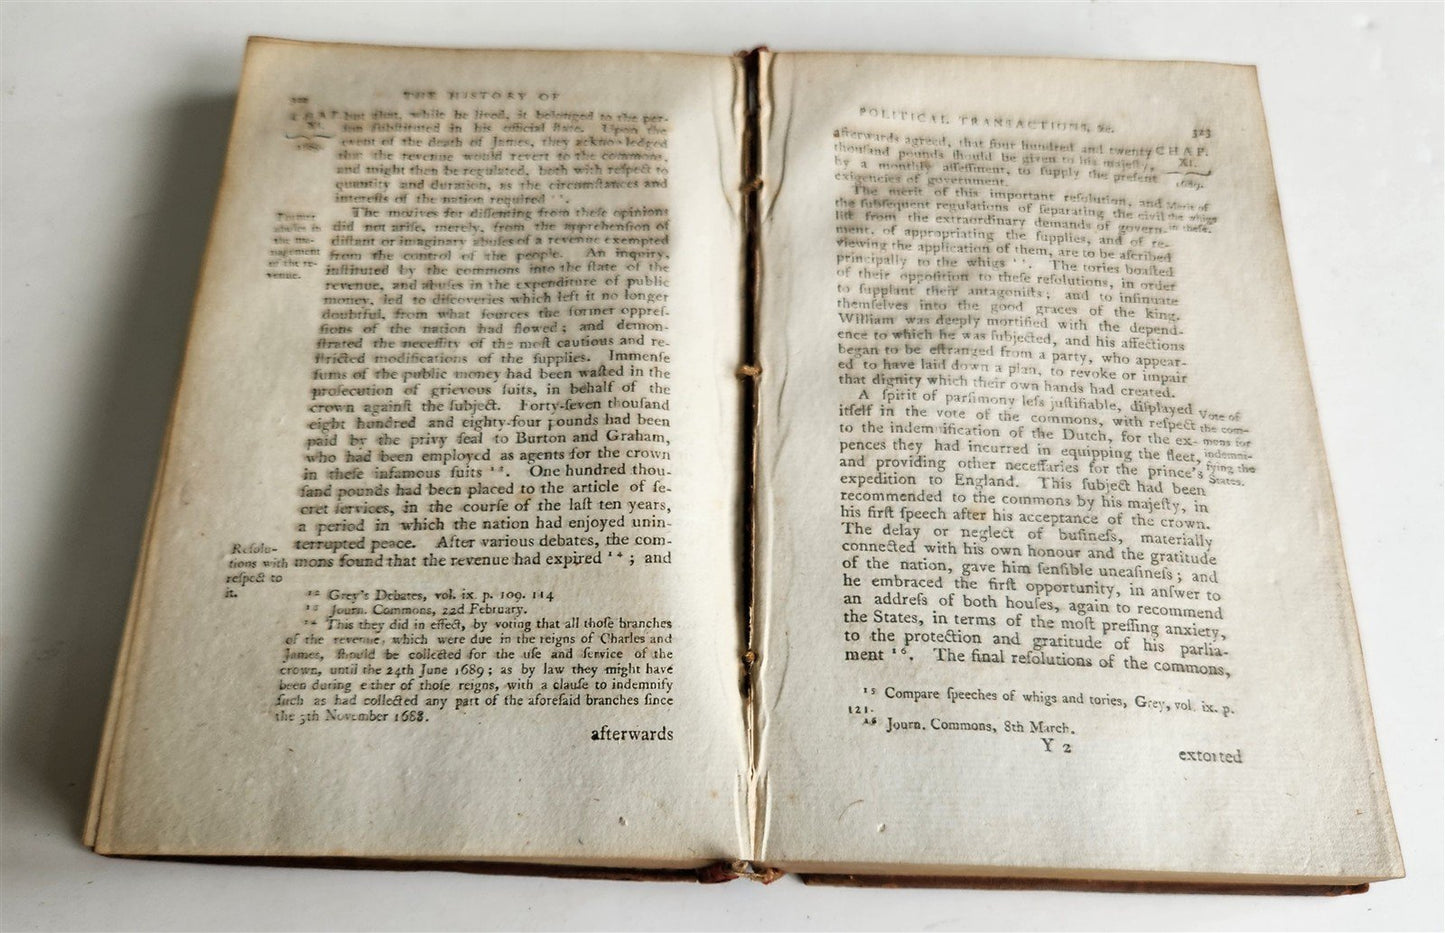 322 THE HISTORY OF
CHAP. but that, while he lived, it belonged to the per-
XI. son ſubſtituted in his official ſtate. Upon the
1689. event of the death of James, they acknowledged
that the revenue would revert to the commons,
and might then be regulated, both with reſpect to
quantity and duration, as the circumſtances and
intereſts of the nation required
The motives for diſſenting from theſe opinions
did not ariſe, merely, from the apprehenſion of
diſtant or imaginary abuſes of a revenue exempted
from the control of the people. An inquiry,
inſtituted by the commons into the ſtate of the
revenue, and abuſes in the expenditure of public
money, led to diſcoveries which left it no longer
doubtful, from what ſources the former oppreſ-
ſions of the nation had flowed; and demon-
ſtrated the neceſſity of the moſt cautious and re-
ſtricted modifications of the ſupplies. Immenſe
ſums of the public money had been waſted in the
proſecution of grievous ſuits, in behalf of the
crown againſt the ſubject. Forty-ſeven thouſand
eight hundred and eighty-four pounds had been
paid by the privy ſeal to Burton and Graham,
who had been employed as agents for the crown
in theſe infamous ſuits ¹³. One hundred thou-
ſand pounds had been placed to the article of ſe-
cret ſervices, in the courſe of the laſt ten years,
a period in which the nation had enjoyed unin-
terrupted peace. After various debates, the com-
mons found that the revenue had expired ¹⁴; and
Former
abuſes in
the ma-
nagement
of the re-
venue.
Reſolu-
tions with
reſpect to
it.
¹² Grey's Debates, vol. ix. p. 109. 114
¹³ Journ. Commons, 22d February.
¹⁴ This they did in effect, by voting that all thoſe branches
of the revenue, which were due in the reigns of Charles and
James, ſhould be collected for the uſe and ſervice of the
crown, until the 24th June 1689; as by law they might have
been during either of thoſe reigns, with a clauſe to indemnify
ſuch as had collected any part of the aforeſaid branches ſince
the 5th November 1688.
afterwards
POLITICAL TRANSACTIONS, &c. 323
afterwards agreed, that four hundred and twenty CHAP.
thouſand pounds ſhould be given to his majeſty, XI.
by a monthly aſſeſſment, to ſupply the preſent 1689.
exigencies of government.
The merit of this important reſolution, and
the ſubſequent regulations of ſeparating the civil
liſt from the extraordinary demands of govern-
ment, of appropriating the ſupplies, and of re-
viewing the application of them, are to be aſcribed
principally to the whigs ¹⁵. The tories boaſted
of their oppoſition to theſe reſolutions, in order
to ſupplant their antagoniſts; and to inſinuate
themſelves into the good graces of the king.
William was deeply mortified with the depend-
ence to which he was ſubjected, and his affections
began to be eſtranged from a party, who appear-
ed to have laid down a plan, to revoke or impair
that dignity which their own hands had created.
A ſpirit of parſimony leſs juſtifiable, diſplayed
itſelf in the vote of the commons, with reſpect
to the indemnification of the Dutch, for the ex-
pences they had incurred in equipping the fleet,
and providing other neceſſaries for the prince's
expedition to England. This ſubject had been
recommended to the commons by his majeſty, in
his firſt ſpeech after his acceptance of the crown.
The delay or neglect of buſineſs, materially
connected with his own honour and the gratitude
of the nation, gave him ſenſible uneaſineſs; and
he embraced the firſt opportunity, in anſwer to
an addreſs of both houſes, again to recommend
the States, in terms of the moſt preſſing anxiety,
to the protection and gratitude of his parlia-
ment ¹⁶. The final reſolutions of the commons,
Merit of
the whigs
in theſe.
Vote of
the com-
mons for
indemni-
fying the
States.
¹⁵ Compare ſpeeches of whigs and tories, Grey, vol. ix. p.
121.
¹⁶ Journ. Commons, 8th March.
Y 2
extorted